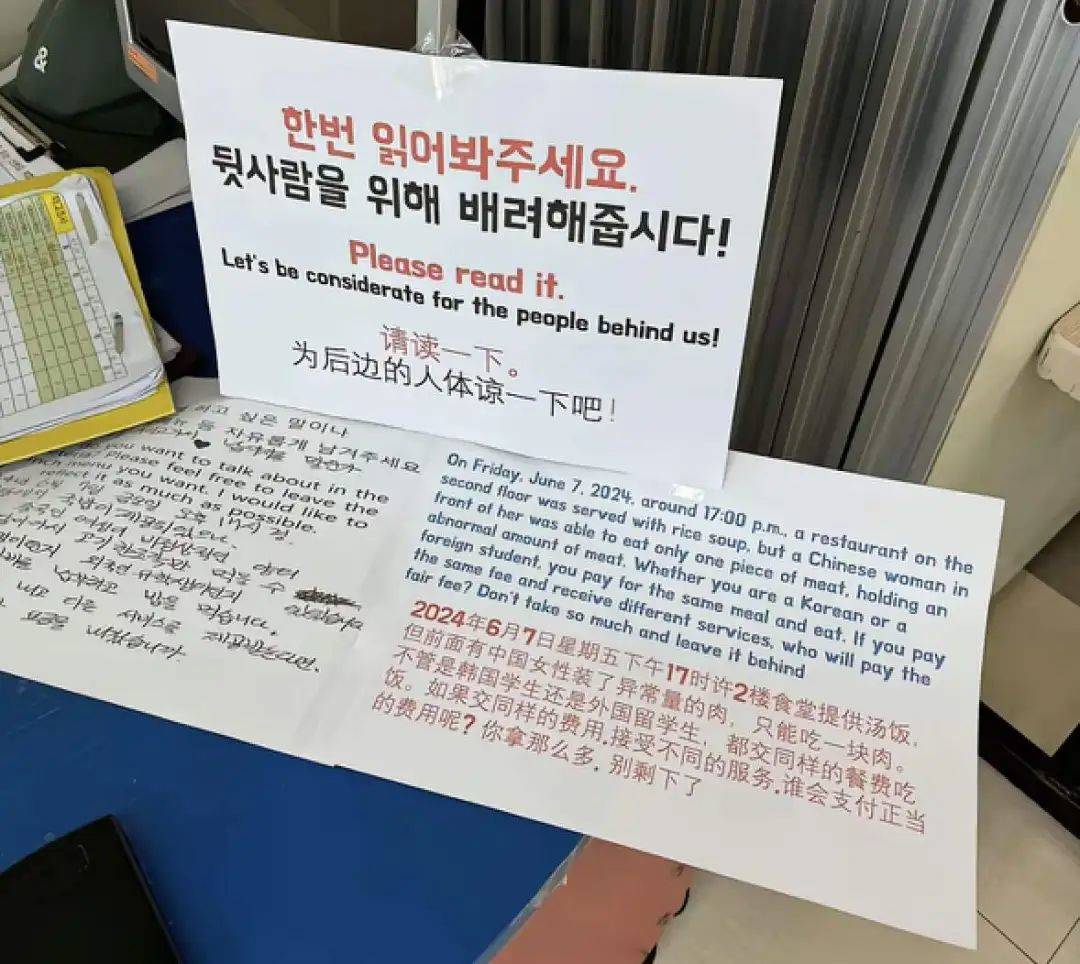 한번 읽어봐주세요.
뒷사람을 위해 배려해줍시다!
Please read it.
Let's be considerate for the people behind us!
请读一下。
为后边的人体谅一下吧!
하고 싶은 말이나
등 자유롭게 남겨주세요
you want to talk about in the
please feel free to leave the
menu you want. I would like to
reflect it as much as possible.
금요일 오후 17시 경
국밥이 제공되었으나,
중국인 여성이 비정상적인 양의
고기 한조각만 먹을 수 있었습니다
외국인 유학생이던지
내고 밥을 먹습니다.
내고 다른 서비스를 제공받는다면,
요금을 내겠습니까.
On Friday, June 7, 2024, around 17:00 p.m., a restaurant on the
second floor was served with rice soup, but a Chinese woman in
front of her was able to eat only one piece of meat, holding an
abnormal amount of meat. Whether you are a Korean or a
foreign student, you pay for the same meal and eat. If you pay
the same fee and receive different services, who will pay the
fair fee? Don't take so much and leave it behind
2024年6月7日星期五下午17时许2楼食堂提供汤饭,
但前面有中国女性装了异常量的肉, 只能吃一块肉。
不管是韩国学生还是外国留学生, 都交同样的餐费吃
饭。如果交同样的费用,接受不同的服务,谁会支付正当
的费用呢? 你拿那么多, 别剩下了